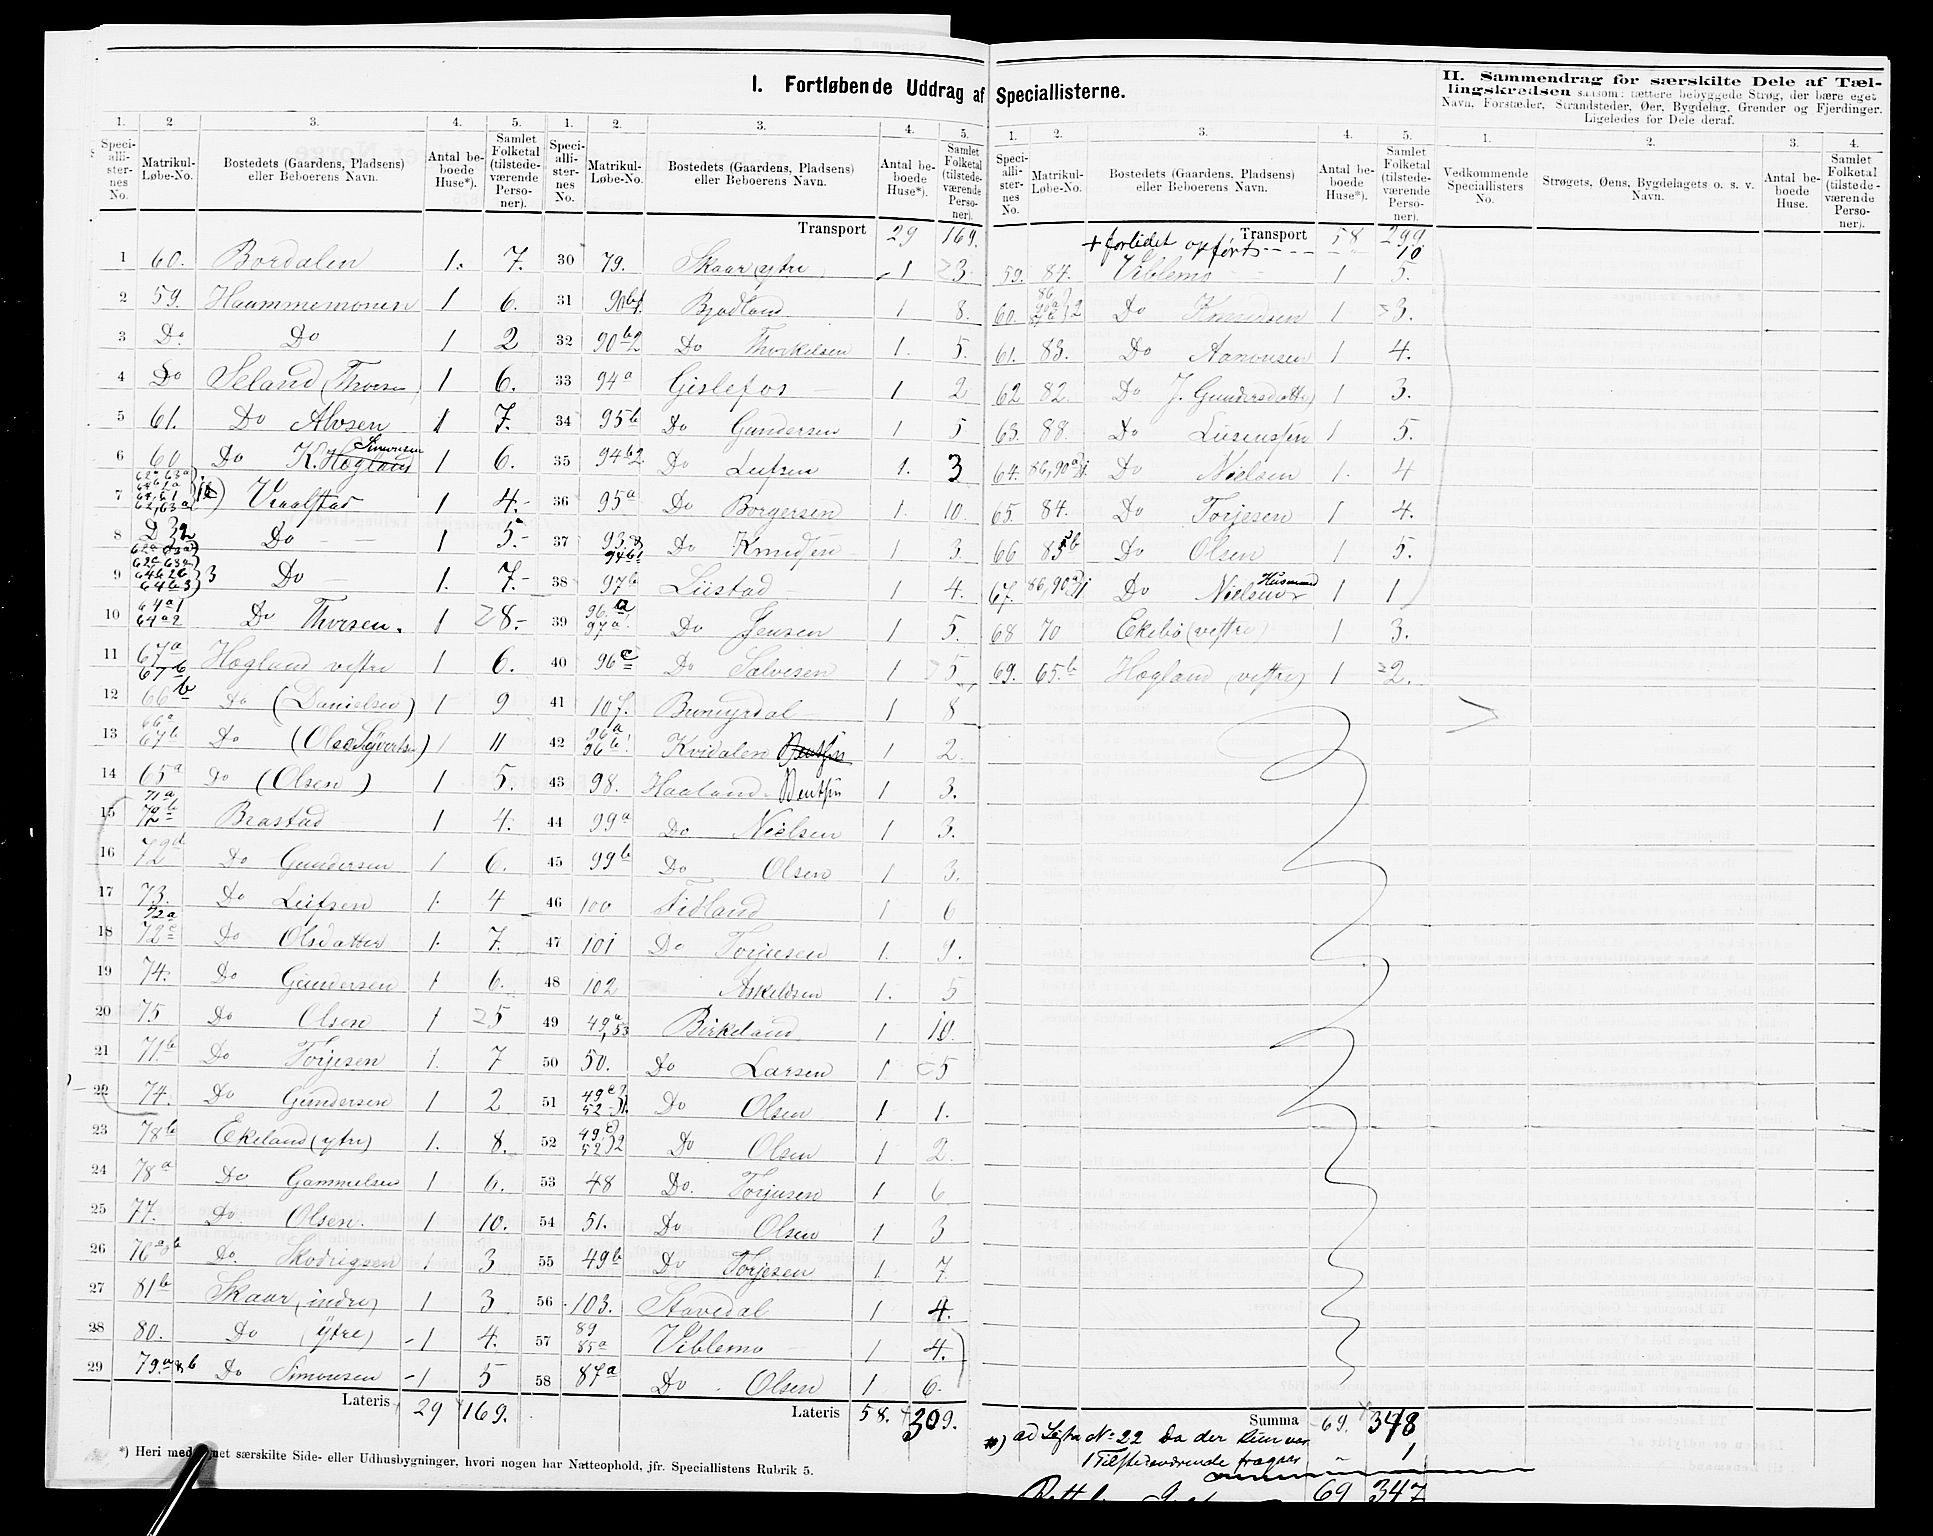 I. Fortløbende Uddrag af Speciallisterne.
II. Sammendrag for særskilte Dele af Tæl-
lingskredsen saasom: tættere bebyggede Strøg, der bære eget
Navn, Forstæder, Strandsteder, Øer, Bygdelag, Grender og Fjerdinger.
Ligeledes for Dele deraf.
1. 2 3. 4. 5. 1. 2. 3. 4. 5. 1. 2. 3. 4. 5. 1. 2. 3. 4.
Speci-alli-ster-nes No. Matrikul-Løbe-No. Bostedets (Gaardens, Pladsens) eller Beboerens Navn. Antal be-boede Huse*). Samlet Folketal (tilstede-værende Perso-ner).
Speci-alli-ster-nes No. Matrikul-Løbe-No. Bostedets (Gaardens, Pladsens) eller Beboerens Navn. Antal be-boede Huse*). Samlet Folketal (tilstede-værende Perso-ner).
Speci-alli-ster-nes No. Matrikul-Løbe-No. Bostedets (Gaardens, Pladsens) eller Beboerens Navn. Antal be-boede Huse*). Samlet Folketal (tilstede-værende Perso-ner).
Vedkommende Speciallisters No. Strøgets, Øens, Bygdelagets o. s. v. Navn. Antal be-boede Huse. Samlet Folketal (tilstede-værende Perso-ner).
1 60. Bordalen 1. 7.
2 59. Haammemonen 1 6.
3 Do Do 1 2
4 Do Seland (Thorsen) 1 6.
5 61. Do Alvsen 1 7.
6 60 Do K. Høgland Simonsen 1 6.
7 Vraalstad 1 4.
8 Do 1 5.
9 62a 63a 64b2b 64b3 } 3 Do 1. 7.
10 64a1 64a2 Do Thorsen. 1 8.
11 67a 67b Høgland vestre 1 6.
12 66b Do (Danielsen) 1 9
13 66a 67b Do (Ole Syvertsen) 1 11
14 65a Do (Olsen) 1 5.
15 71a 72b Brastad 1 4.
16 72d Do Gundersen 1 6.
17 73. Do Leifsen 1. 4
18 72a 72c Do Olsdatter 1. 7.
19 74. Do Gundersen 1 6.
20 75 Do Olsen 1 5
21 71b Do Torjesen 1. 7
22 74. Do Gundersen 1 2
23 78b Ekeland (ytre) 1. 8.
24 78a Do Gammelsen 1 6.
25 77. Do Olsen. 1 10.
26 76a b Do. Skodvigsen 1 3
27 81b Skaar (indre) 1 3
28 80. Do (ytre) 1 4.
29 79a 8b Do Simonsen 1 5
Lateris 29 169.
Transport 29 169.
30 79. Skaar ytre 1 3
31 90b1 Bjodland 1 8.
32 90b2 Do Thorkelsen 1. 5.
33 94a Gislefos 1 2
34 95b Do Gundersen 1 5
35 94b2 Do Leifsen 1. 3
36 95a Do Borgersen 1. 10.
37 93.8 94b1 Do Knudsen 1 3.
38 97b Liistad 1 4.
39 96a 97a Do Jensen 1 5.
40 96c Do Salvesen 1 5
41 107. Bruneyrdal 1 8
42 96a 96b Kvidalen Bentsen 1 2.
43 98. Haaland. Bentsen 1 3.
44 99a Do Nielsen 1 3.
45 99b Do Olsen 1 3.
46 100 Fidland 1 6
47 101 Do Torjusen 1. 9.
48 102 Askeldsen 1. 5
49 49a,53 Birkeland 1 10.
50 50. Do Larsen 1 5
51 49c 52 }1. Do Olsen 1 1.
52 49c 52 }2 Do Olsen 1 2.
53 48 Do. Torjusen 1 6
54 51. Do Olsen 1 3
55 49b Do Torjesen 1. 7.
56 103. Stavedal 1 4.
57 89 85a Viblemo 1 4.
58 87a Do. Olsen 1 6.
Lateris 58. 309.
Transport 58 299
+ forbidet opførts - - - 10
59. 84. Viblemo 1 5.
60. 86 90a }2 Do Knudsen 1 3.
61. 83. Do Aanonsen 1 4.
62 82. Do J. Gundersdatter 1 3.
63. 88. Do 1 5.
64. 86,90a}1. Do Nielsen 1. 4
65. 84. Do Torjesen 1 4.
66 85b Do Olsen 1 5.
67. 86,90a}1 Do Nielsen Husmand 1 1
68 70 Ekebø (vestre) 1 3.
69. 65b Høgland (vestre) 1 2.
Summa 69. 348
*) ad Liste No 22 Da der kun var
1 Tilstedeværende fragaar - 1
69 347
*) Heri medregnet særskilte Side- eller Udhusbygninger, hvori nogen har Natteophold, jfr. Speciallistens Rubrik 5.